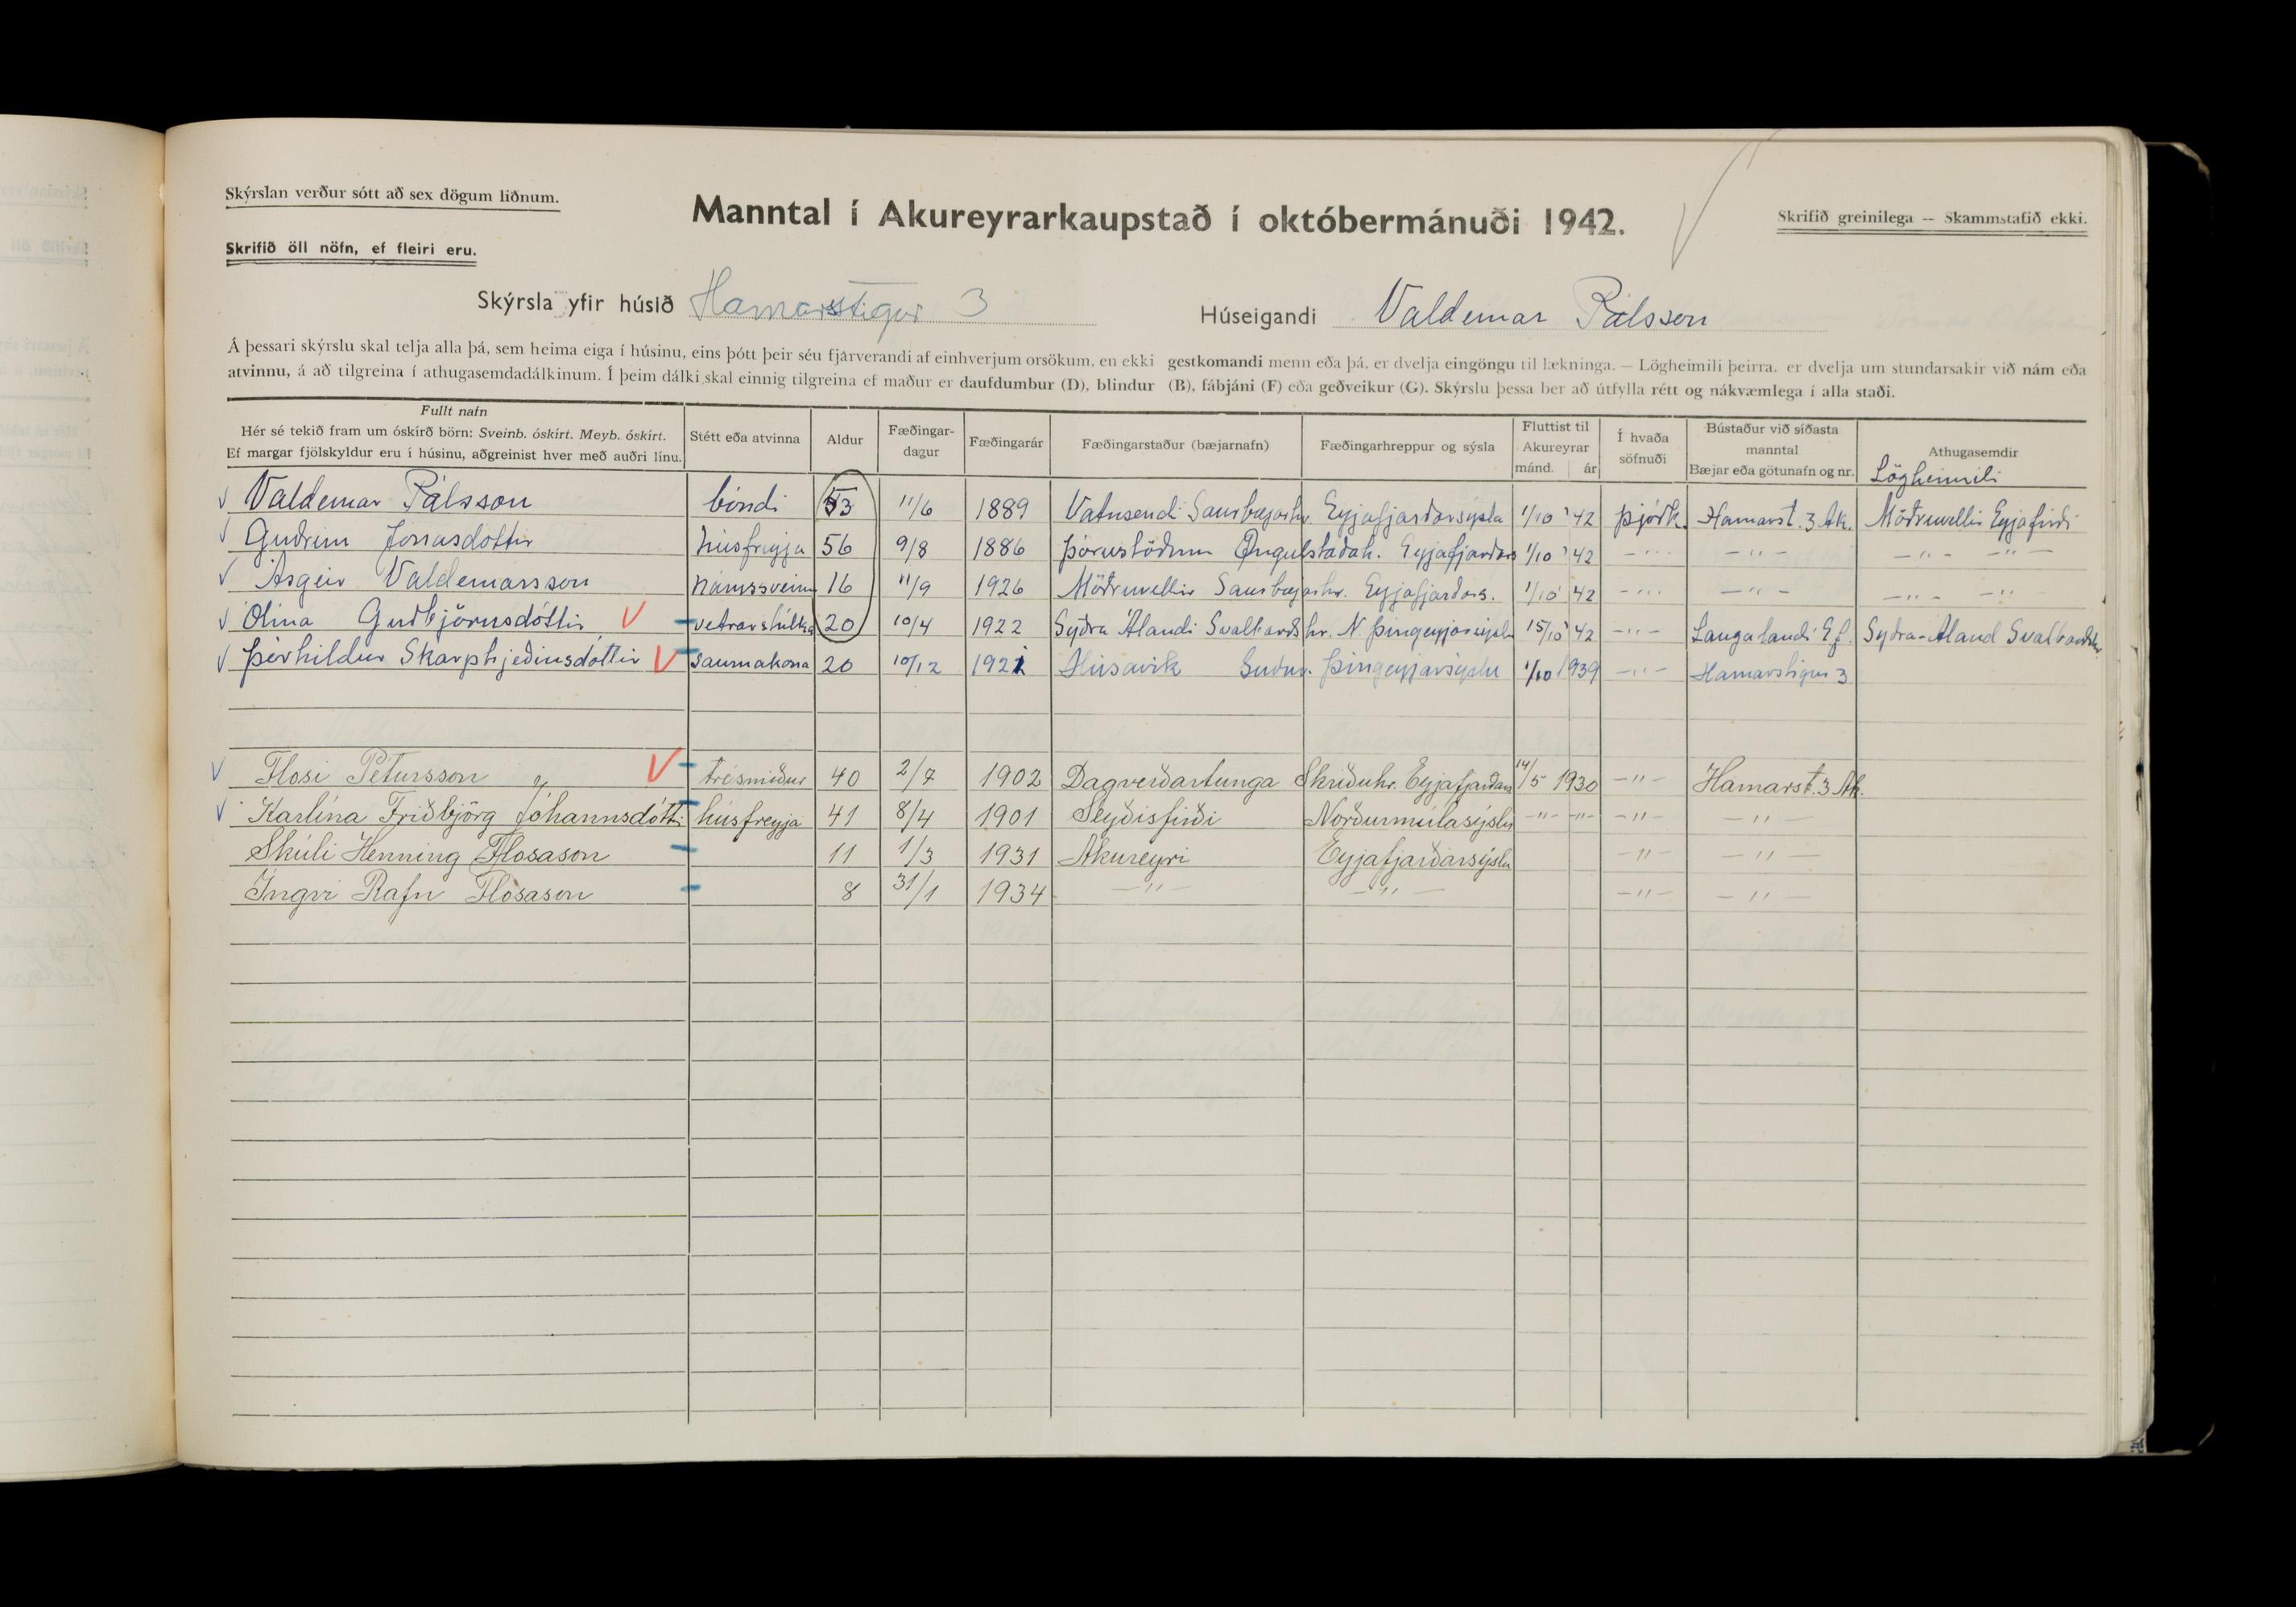 Skýrslan verður sótt að sex dögum liðnum.
Manntal í Akureyrarkaupstað í októbermánuði 1942.
Skrifið greinilega — Skammstafið ekki.
Skrifið öll nöfn, ef fleiri eru.
Skýrsla yfir húsið Hamarstígur 3 Húseigandi Valdemar Pálsson
Á þessari skýrslu skal telja alla þá, sem heima eiga í húsinu, eins þótt þeir séu fjarverandi af einhverjum orsökum, en ekki gestkomandi menn eða þá, er dvelja eingöngu til lækninga. — Lögheimili þeirra, er dvelja um stundarsakir við nám eða
atvinnu, á að tilgreina í athugasemdadálkinum. Í þeim dálki skal einnig tilgreina ef maður er daufdumbur (D), blindur (B), fábjáni (F) eða geðveikur (G). Skýrslu þessa ber að útfylla rétt og nákvæmlega í alla staði.
Fullt nafn
Hér sé tekið fram um óskírð börn: Sveinb. óskírt. Meyb. óskírt.
Ef margar fjölskyldur eru í húsinu, aðgreinist hver með auðri línu.
Stétt eða atvinna
Aldur
Fæðingar-
dagur
Fæðingarár
Fæðingarstaður (bæjarnafn)
Fæðingarhreppur og sýsla
Fluttist til
Akureyrar
mánd. ár
Í hvaða
söfnuði
Bústaður við síðasta
manntal
Bæjar eða götunafn og nr.
Athugasemdir
Lögheimili
Valdemar Pálsson bóndi 53 11/6 1889 Vatnsendi Saurbæjarhr. Eyjafjarðarsýsla 1/10 '42 Þjóðk. Hamarst. 3 Ak. Möðruvellir Eyjafirði
Guðrún Jónasdóttir húsfreyja 56 9/8 1886 Þórustöðum Öngulstaðah. Eyjafjarðars 1/10 '42 -"- -"- -"- -"-
Ásgeir Valdemarsson námssveinn 16 11/9 1926 Möðruvellir Saurbæjarhr. Eyjafjarðars. 1/10 42 -"- -"- -"- -"-
Ólína Guðbjörnsdóttir vetrarstúlka 20 10/4 1922 Syðra Álandi Svalbarðshr. N. Þingeyjarsýslu 15/10 '42 -"- Laugalandi Ef. Syðra-Áland Svalbarðshr.
Þórhildur Skarphjeðinsdóttir saumakona 20 10/12 1921 Húsavík Suður. Þingeyjarsýslu 1/10 1939 -"- Hamarstígur 3
Flosi Pétursson trésmiður 40 2/7 1902 Dagverðartunga Skriðuhr. Eyjafjarðars 14/5 1930 -"- Hamarst. 3 Ak.
Karlína Friðbjörg Jóhannsdótti húsfreyja 41 8/4 1901 Seyðisfirði Norðurmúlasýslu -"- -"- -"- -"-
Skúli Henning Flosason 11 1/3 1931 Akureyri Eyjafjarðarsýslu -"- -"-
Ingvi Rafn Flosason 8 31/1 1934 -"- -"- -"- -"-